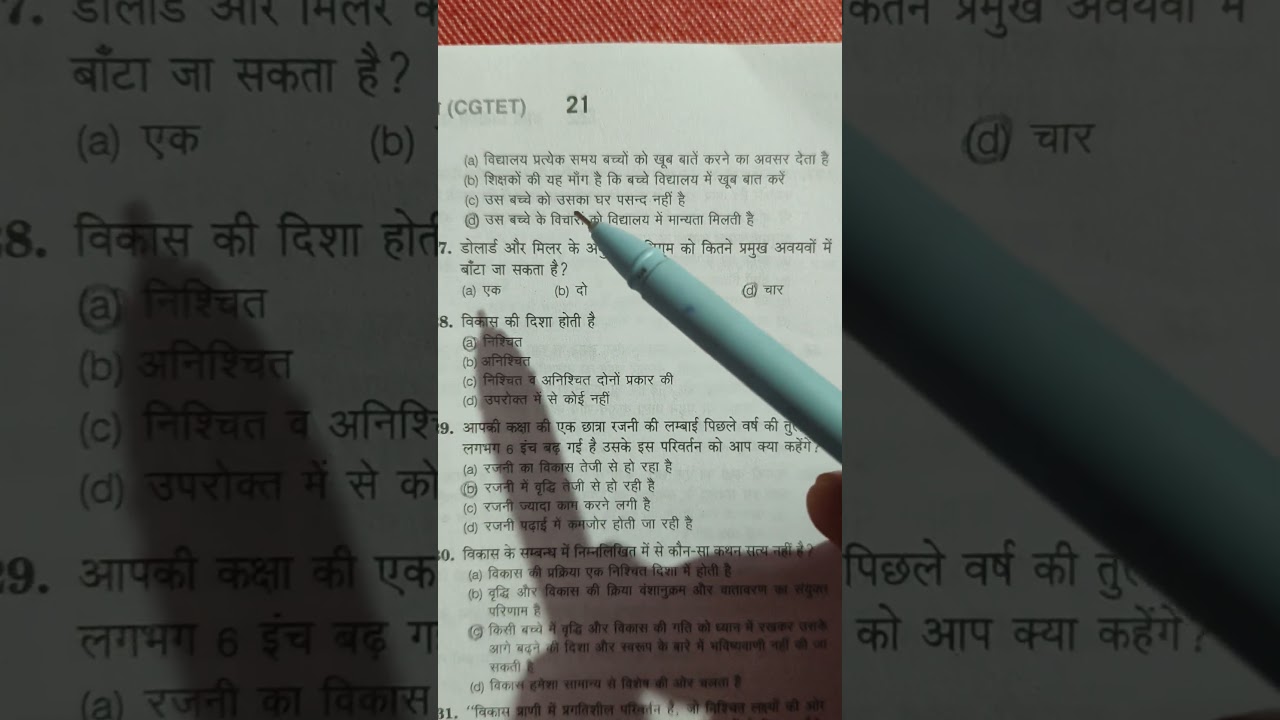 (CGTET) 21
(a) विद्यालय प्रत्येक समय बच्चों को खूब बातें करने का अवसर देता है
(b) शिक्षकों की यह माँग है कि बच्चे विद्यालय में खूब बात करें
(c) उस बच्चे को उसका घर पसन्द नहीं है
(d) उस बच्चे के विचारों को विद्यालय में मान्यता मिलती है
7. डोलार्ड और मिलर के को कितने प्रमुख अवयवों में
बाँटा जा सकता है?
(a) एक (b) दो (d) चार
8. विकास की दिशा होती है
(a) निश्चित
(b) अनिश्चित
(c) निश्चित व अनिश्चित दोनों प्रकार की
(d) उपरोक्त में से कोई नहीं
9. आपकी कक्षा की एक छात्रा रजनी की लम्बाई पिछले वर्ष की
लगभग 6 इंच बढ़ गई है उसके इस परिवर्तन को आप क्या कहेंगे?
(a) रजनी का विकास तेजी से हो रहा है
(b) रजनी में वृद्धि तेजी से हो रही है
(c) रजनी ज्यादा काम करने लगी है
(d) रजनी पढ़ाई में कमजोर होती जा रही है
0. विकास के सम्बन्ध में निम्नलिखित में से कौन-सा कथन सत्य नहीं है?
(a) विकास की प्रक्रिया एक निश्चित दिशा में होती है
(b) वृद्धि और विकास की क्रिया वंशानुक्रम और वातावरण का संयुक्त
परिणाम है
(c) किसी बच्चे में वृद्धि और विकास की गति को ध्यान में रखकर उसके
आगे बढ़ने की दिशा और स्वरूप के बारे में भविष्यवाणी नहीं की जा
सकती है
(d) विकास हमेशा सामान्य से विशेष की ओर चलता है
31. "विकास प्राणी में प्रगतिशील परिवर्तन है, जो निश्चित लक्ष्यों की ओर